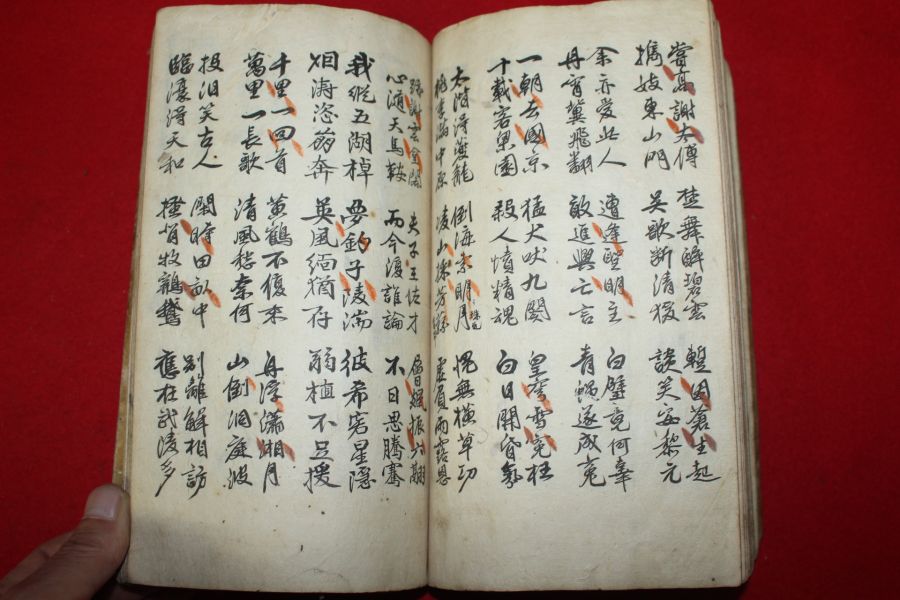 嘗高謝太傅
攜妓東山門
楚舞醉碧雲
吳歌斷清猿
暫因蒼生起
談笑安黎元
余亦愛此人
丹霄冀飛翻
遭逢聖明主
敢進興亡言
白璧竟何辜
青蠅遂成冤
一朝去國京
十載客梁園
猛犬吠九關
殺人憤精魂
皇穹雪冤枉
白日開昏氛
太階得夔龍
桃李滿中原
倒海索明月 珠也
凌山採芳蓀
愧無橫草功
虛負雨露恩
跡謝雲臺閣
心隨天馬轅
夫子王佐才
而今復誰論
層飆振六翮
不日思騰騫
我縱五湖棹
烟濤恣崩奔
夢釣子陵湍
英風緬猶存
彼希客星隱
弱植不足援
千里一回首
萬里一長歌
黃鶴不復來
清風愁奈何
舟浮瀟湘月
山倒洞庭波
投汨笑古人
臨濠得天和
閑時田畝中
搔背牧鷄鵝
別離解相訪
應在武陵多